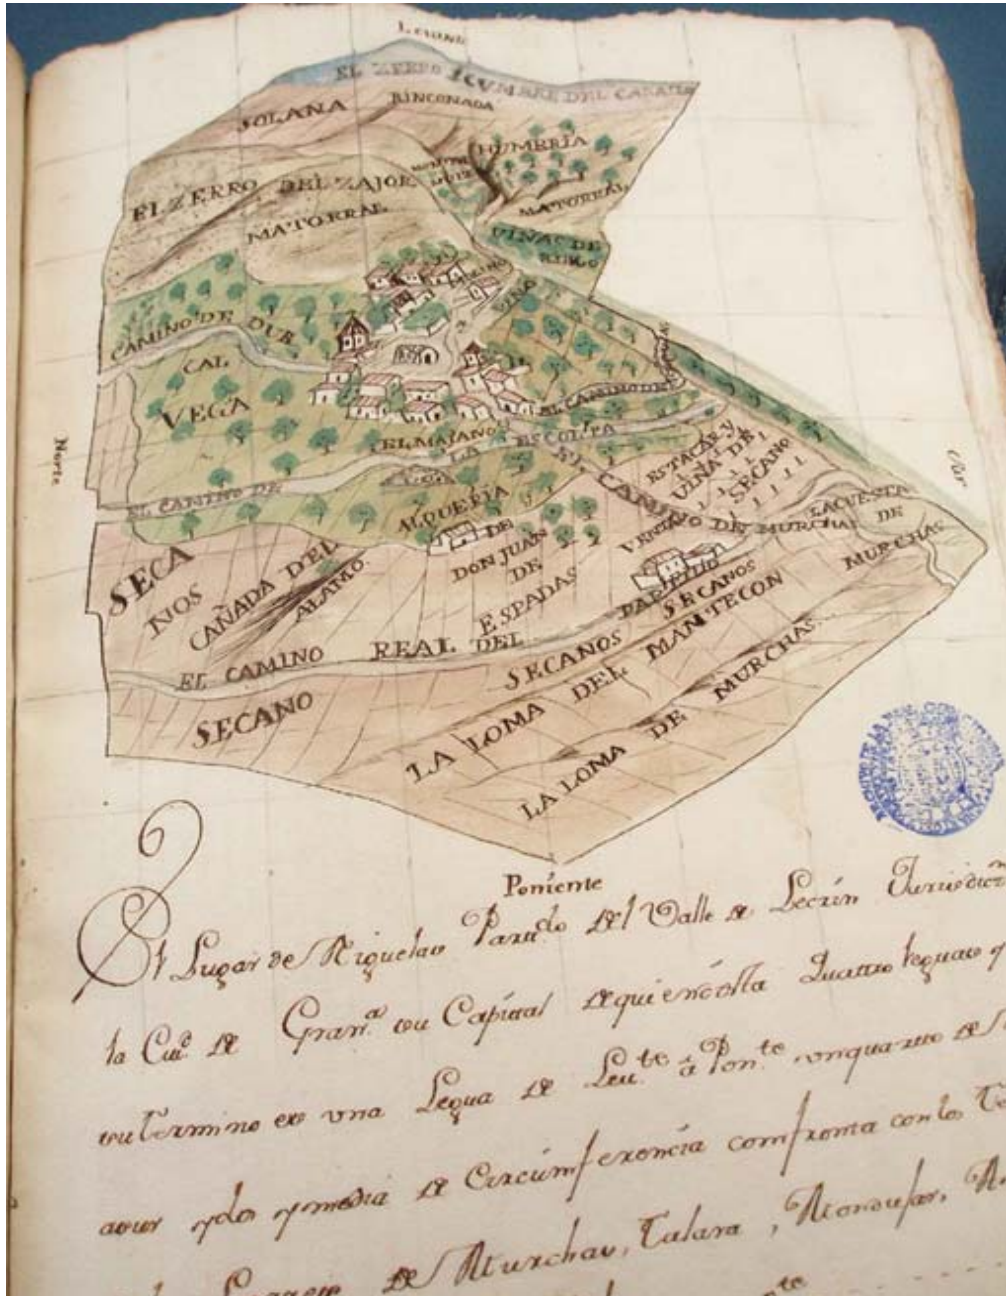 Levante
EL ZERRO Y CUMBRE DEL CABALLO
SOLANA
RINCONADA
HUMBRIA
EL ZERRO DEL ZAJOR
MATORRAL
MATORRAL
VIÑAS DE
RIEGO
CAMINO DE DUR
CAL
VEGA
EL CAMINO DE
EL MAJANO
LA ESCOLTA
EL CAMINO DE
ESTACAR Y
VIÑA DE
SECANO
EL CAMINO DE MURCHAS
VENTA
LA CUESTA
DE
MURCHAS
Norte
Sur
ALQUERIA
DE
DON JUAN
DE
ESPADAS
SECA
NOS
CAÑADA DEL
ALAMO
EL CAMINO REAL DEL
SECANOS
SECANOS
SECANO
LA LOMA DEL MANTECON
LA LOMA DE MURCHAS
Poniente
El Lugar de Niguelas Partido del Valle de Lecrin Jurisdicn
la Ciud. de Grana. su Capital de quien dista Quattro leguas y
su termino es una Legua de Levte. â Ponte. un quarto de
sur y dos y media de Circumferencia comfronta con los
de Murchas, Talara, Mondujar,